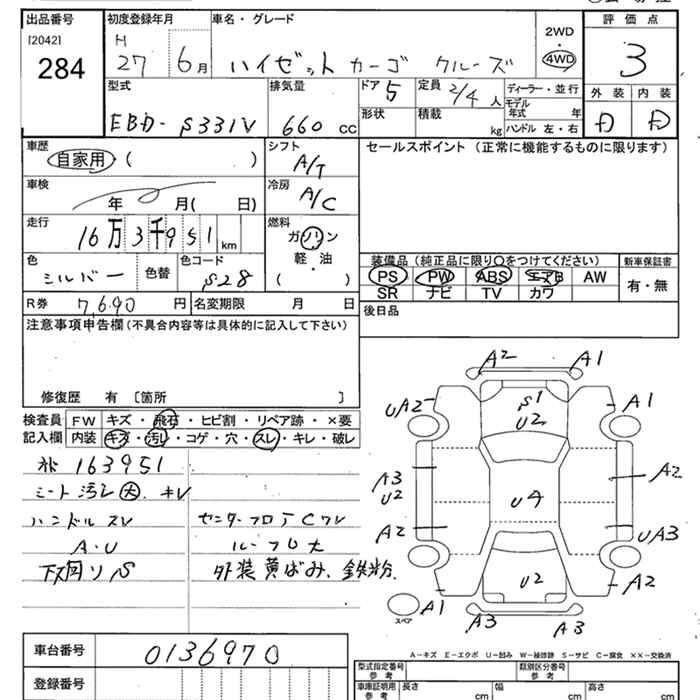 出品番号 初度登録年月 車名・グレード 評価点
[2042] H 2WD
284 27 6月 ハイゼット カーゴ クルーズ 4WD 3
型式 排気量 ドア 定員 ディーラー・並行 外装 内装
EBD-S331V 660 CC 5 2/4人 モデル年式 年
形状 積載 kg ハンドル 左・右
車歴 シフト セールスポイント(正常に機能するものに限ります)
自家用 ( ) A/T
車検 冷房
年 月( 日) A/C
走行 燃料
16万3千951km ガソリン
軽・油
( )
色 色替 色コード 装備品(純正品に限り○をつけてください) 新車保証書
シルバー S28 PS PW ABS エアB AW 有・無
SR ナビ TV カワ
R券 7,690 円 名変期限 月 日 後日品
注意事項申告欄(不具合内容等は具体的に記入して下さい)
修復歴 有 [箇所 ]
検査員 FW キズ・飛石・ヒビ割・リペア跡・×要
記入欄 内装 キズ・汚レ・コゲ・穴・スレ・キレ・破レ
163951
シート汚レ大 キレ
ハンドルスレ
A・U
下廻りS
外装黄ばみ、鉄粉
A2 A1
UA2 S1 A1
U2
A3 U2 U4 A2
A2 UA3
U2 A2
スペア A1 A3 A3
A-キズ E-エクボ U-凹み W-補修跡 S-サビ C-腐食 ××-交換済
車台番号 0136970
登録番号
型式指定番号 参考 類別区分番号 参考
車庫証明用 参考 長さ cm 幅 cm 高さ cm